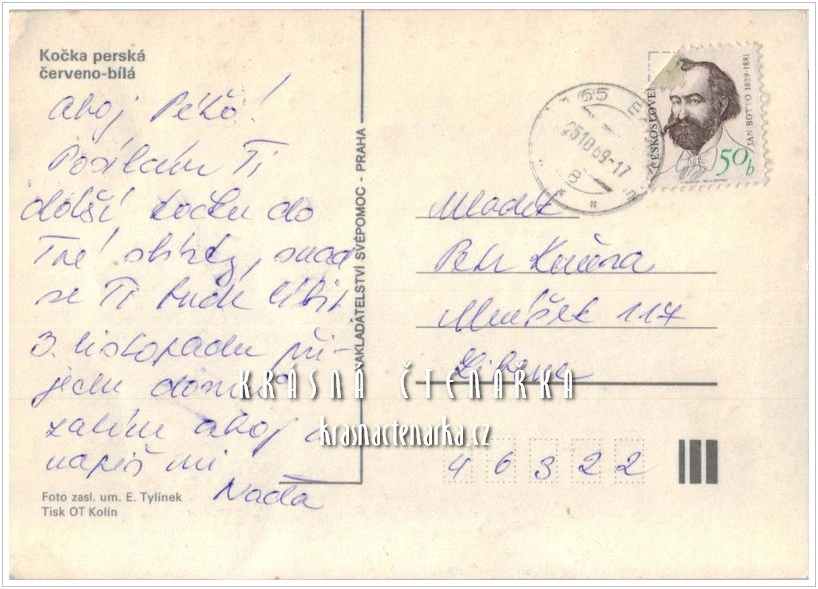 Kočka perská
červeno-bílá
Ahoj Péťo!
Posílám Ti
další kočku do
Tvé sbírky, snad
se Ti bude líbit
3. listopadu při-
jedu domů
zatím ahoj a
napiš mi
Naďa
Foto zasl. um. E. Tylínek
Tisk OT Kolín
NAKLADATELSTVÍ SVÉPOMOC - PRAHA
25.10.89-17
ČESKOSLOVE
JAN BOTTO 1829-1881
50h
Petr Kučera
117
46322
KRÁSNÁ ČTENÁŘKA
krasnactenarka.cz